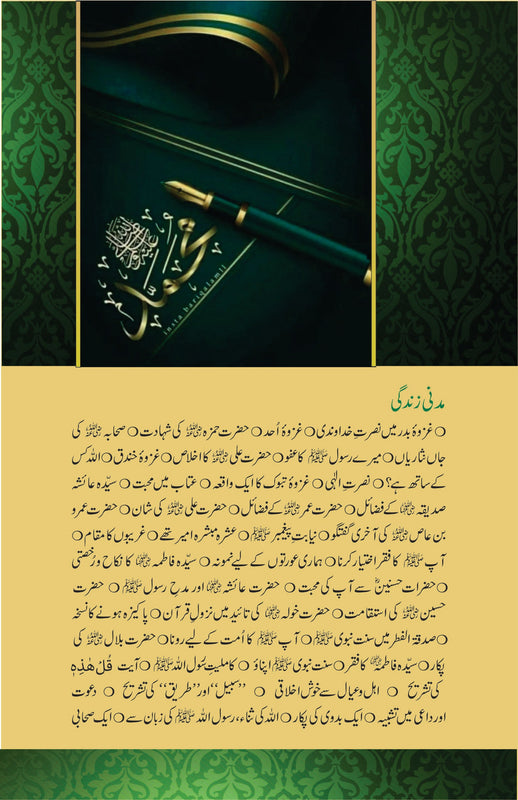 محمد
ﷺ
insta bariqalamli
مدنی زندگی
❍ غزوۂ بدر میں نصرتِ خداوندی ❍ غزوۂ اُحد ❍ حضرت حمزہ رضی اللہ عنہ کی شہادت ❍ صحابہ رضی اللہ عنہم کی
جاں نثاریاں ❍ میرے رسول ﷺ کا عفو ❍ حضرت علی رضی اللہ عنہ کا اخلاص ❍ غزوۂ خندق ❍ اللہ کس
کے ساتھ ہے؟ ❍ نصرتِ الٰہی ❍ غزوۂ تبوک کا ایک واقعہ ❍ عتاب میں محبت ❍ سیّدہ عائشہ
صدیقہ رضی اللہ عنہا کے فضائل ❍ حضرت عمر رضی اللہ عنہ کے فضائل ❍ حضرت علی رضی اللہ عنہ کی شان ❍ حضرت عمرو
بن عاص رضی اللہ عنہ کی آخری گفتگو ❍ نیابتِ پیغمبر ﷺ ❍ عشرہ مبشرہ امیر تھے ❍ غریبوں کا مقام ❍
آپ ﷺ کا فقر اختیار کرنا ❍ ہماری عورتوں کے لیے نمونہ ❍ سیّدہ فاطمہ رضی اللہ عنہا کا نکاح و رُخصتی
❍ حضرات حسنینؓ سے آپ کی محبت ❍ حضرت عائشہ رضی اللہ عنہا اور مدحِ رسول ﷺ ❍ حضرت
حسین رضی اللہ عنہ کی استقامت ❍ حضرت خولہ رضی اللہ عنہا کی تائید میں نزولِ قرآن ❍ پاکیزہ ہونے کا نسخہ
❍ صدقۃ الفطر میں سنت نبوی ﷺ ❍ آپ ﷺ کا اُمت کے لیے رونا ❍ حضرت بلال رضی اللہ عنہ کی
پکار ❍ سیّدہ فاطمہ رضی اللہ عنہا کا فقر ❍ سنت نبوی ﷺ اپناؤ ❍ کاملیتِ رسُول اللہ ﷺ ❍ آیت قُلْ هٰذِهٖ
کی تشریح ❍ اہل و عیال سے خوش اخلاقی ❍ ’’سبیل‘‘ اور ’’طریق‘‘ کی تشریح ❍ دعوت
اور داعی میں تشبیہ ❍ ایک بدوی کی پکار ❍ اللہ کی ثناء، رسول اللہ ﷺ کی زبان سے ❍ ایک صحابی